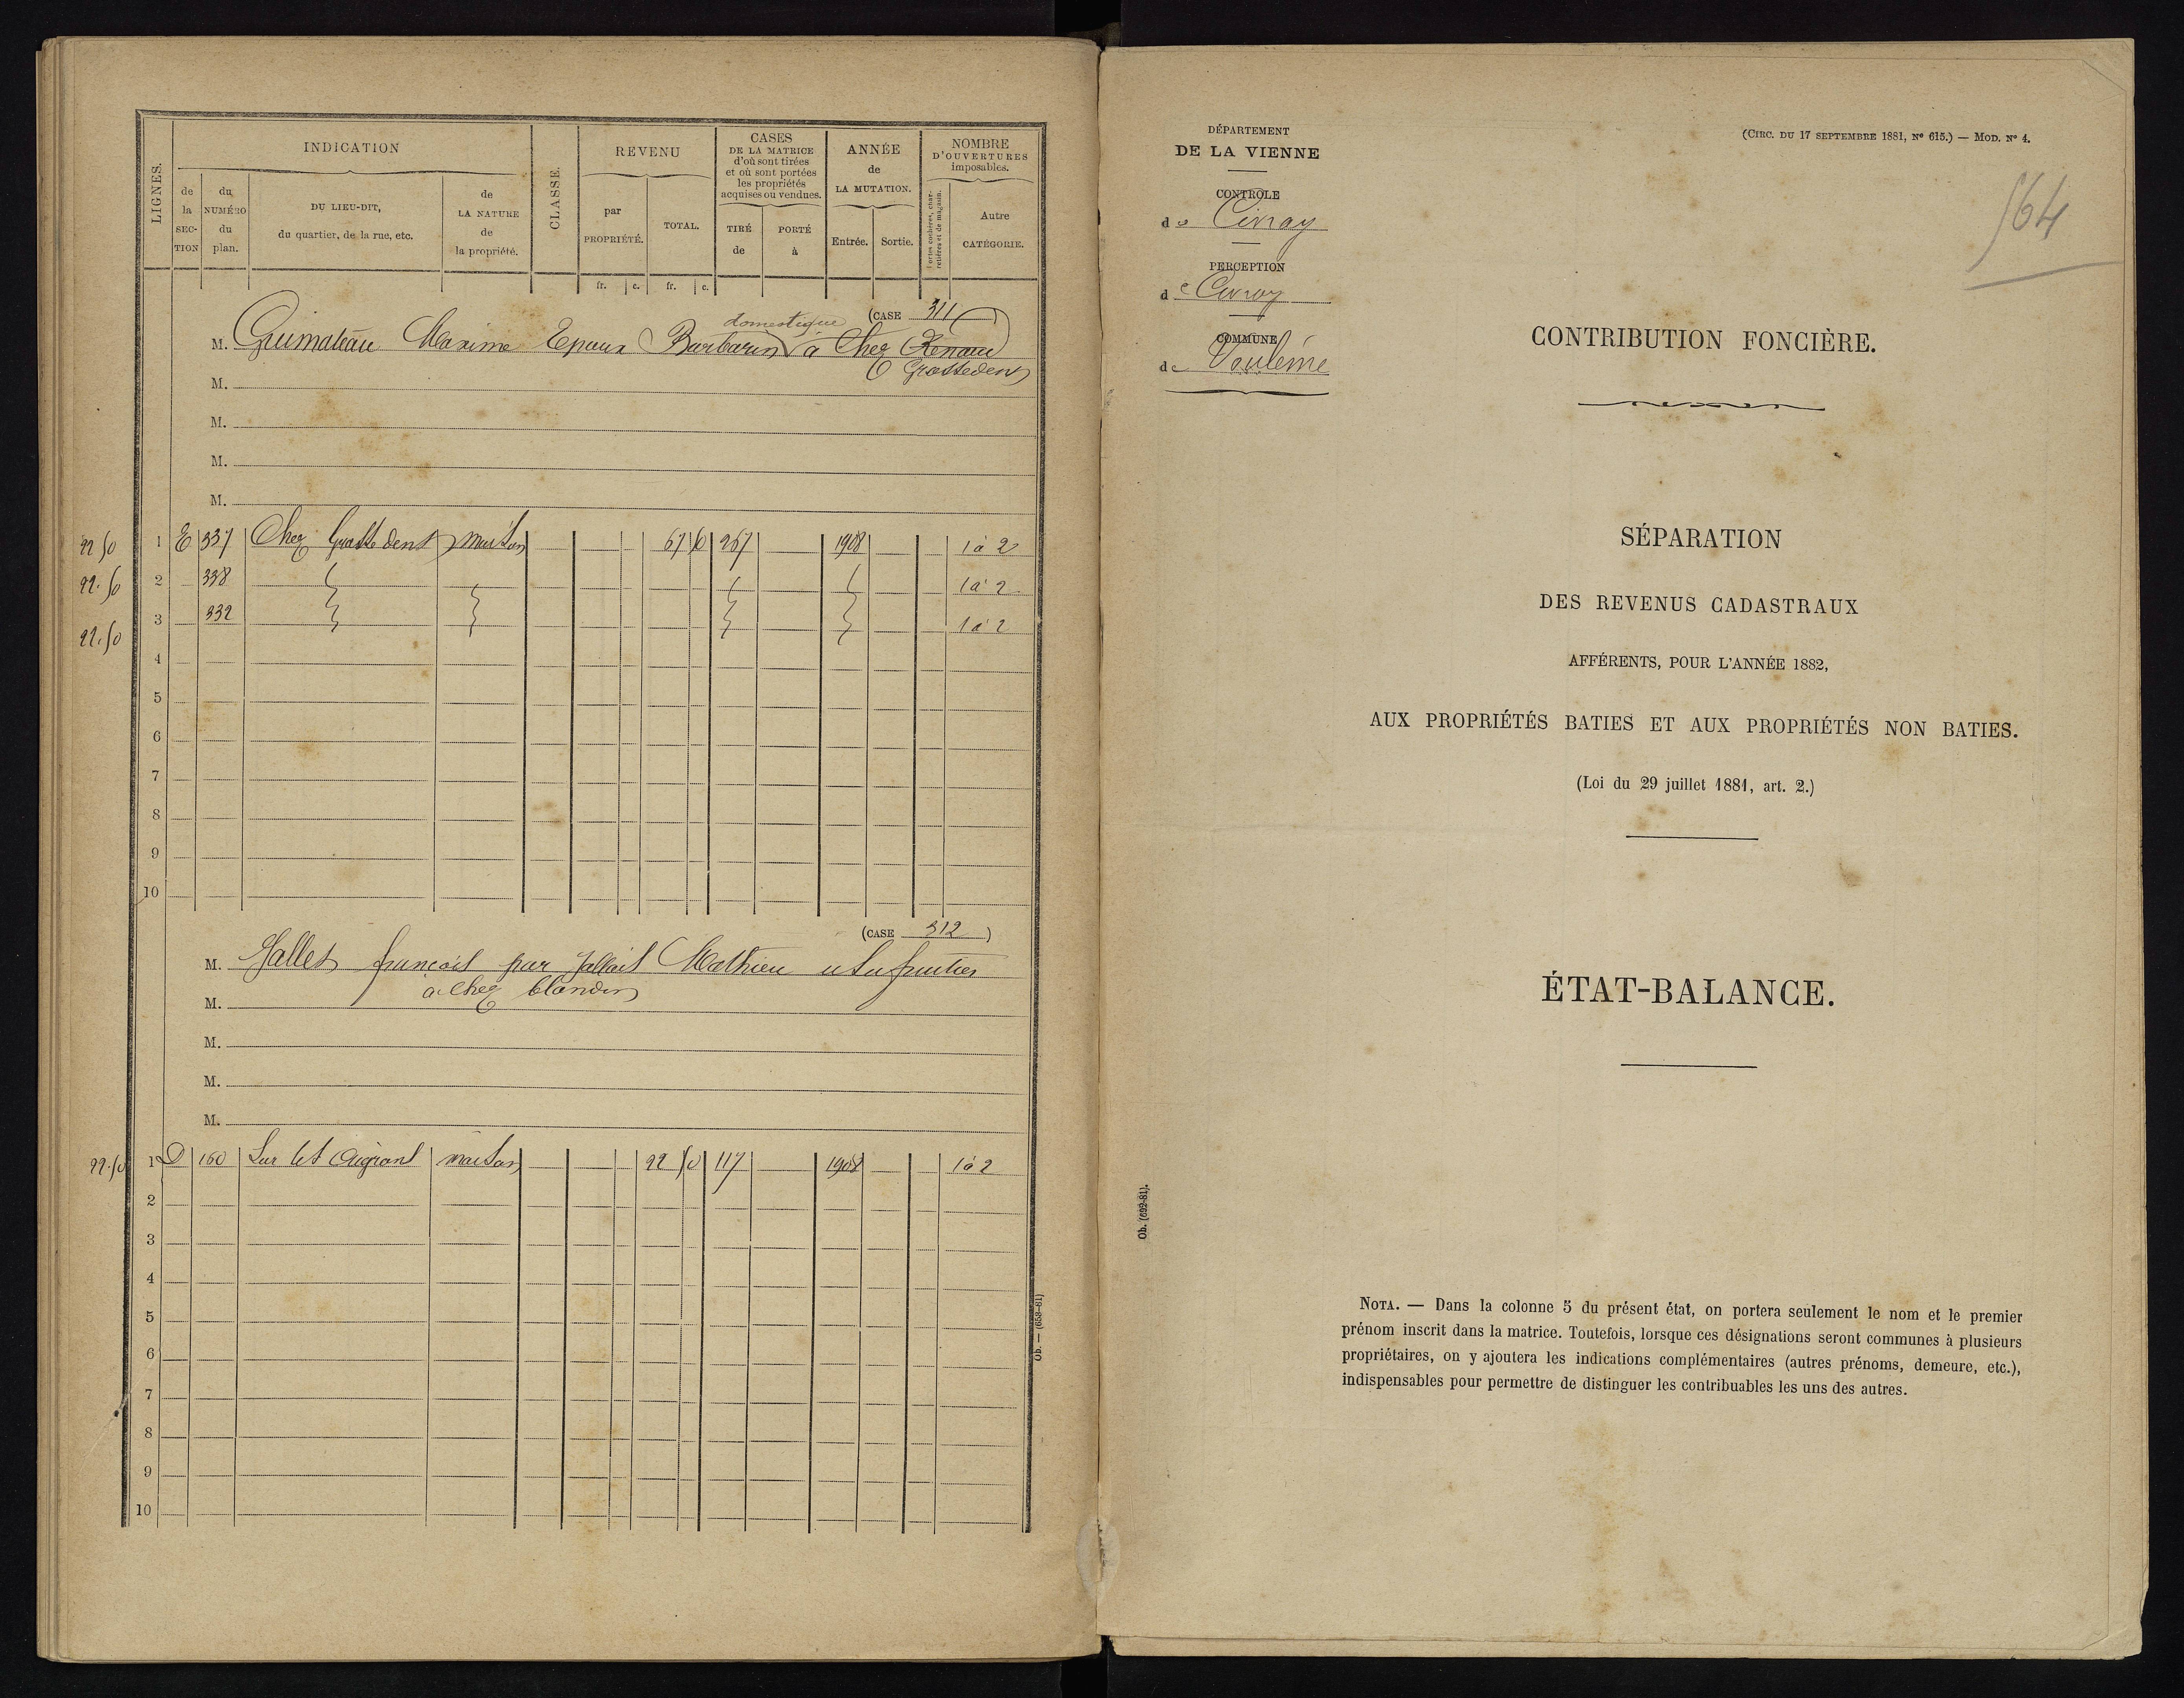 LIGNES.
INDICATION
de la SECTION
du NUMÉRO du plan.
DU LIEU-DIT, du quartier, de la rue, etc.
de LA NATURE de la propriété.
CLASSE
REVENU
par PROPRIÉTÉ.
TOTAL.
CASES DE LA MATRICE d'où sont tirées et où sont portées les propriétés acquises ou vendues.
TIRÉ de
PORTÉ à
ANNÉE de LA MUTATION.
Entrée.
Sortie.
NOMBRE D'OUVERTURES imposables.
Portes cochères, charretières et de magasin.
Autre CATÉGORIE.
fr. c. fr. c.
(CASE 311)
domestique
M. Guimateau Maxime Epoux Barbarin à Chez Renaud
Grossedent
M.
M.
M.
M.
22 50 1 E 337 Chez Grossedent maison 67 50 267 1908 1 à 2
22.50 2 338 1 à 2
22.50 3 332 1 à 2
4
5
6
7
8
9
10
(CASE 312)
M. Jallet françois par Jallais Mathieu usufruitier
M. à Chez blandin
M.
M.
M.
22.50 1 D 160 Sur les maison 22 50 117 1908 1 à 2
2
3
4
5
6
7
8
9
10
Ob. — (653-81)
DÉPARTEMENT
DE LA VIENNE
CONTRÔLE
de Civray
PERCEPTION
de Civray
COMMUNE
de Voulême
(CIRC. DU 17 SEPTEMBRE 1881, N° 615.) — MOD. N° 4.
564
CONTRIBUTION FONCIÈRE.
SÉPARATION
DES REVENUS CADASTRAUX
AFFÉRENTS, POUR L'ANNÉE 1882,
AUX PROPRIÉTÉS BATIES ET AUX PROPRIÉTÉS NON BATIES.
(Loi du 29 juillet 1881, art. 2.)
ÉTAT-BALANCE.
Ob. (692-81).
NOTA. — Dans la colonne 5 du présent état, on portera seulement le nom et le premier
prénom inscrit dans la matrice. Toutefois, lorsque ces désignations seront communes à plusieurs
propriétaires, on y ajoutera les indications complémentaires (autres prénoms, demeure, etc.),
indispensables pour permettre de distinguer les contribuables les uns des autres.